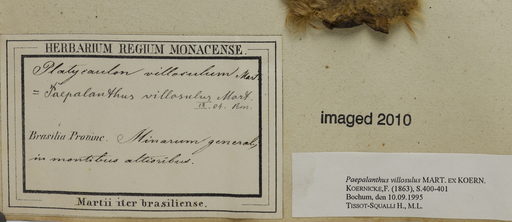 HERBARIUM REGIUM MONACENSE.
Platycaulon villosulum Mart.
= Paepalanthus villosulus Mart.
IX. 04.
Brasilia Provinc. Minarum general.
in montibus altioribus.
Martii iter brasiliense.
imaged 2010
Paepalanthus villosulus MART. EX KOERN.
KOERNICKE,F. (1863), S.400-401
Bochum, den 10.09.1995
TISSOT-SQUALLI H., M.L.